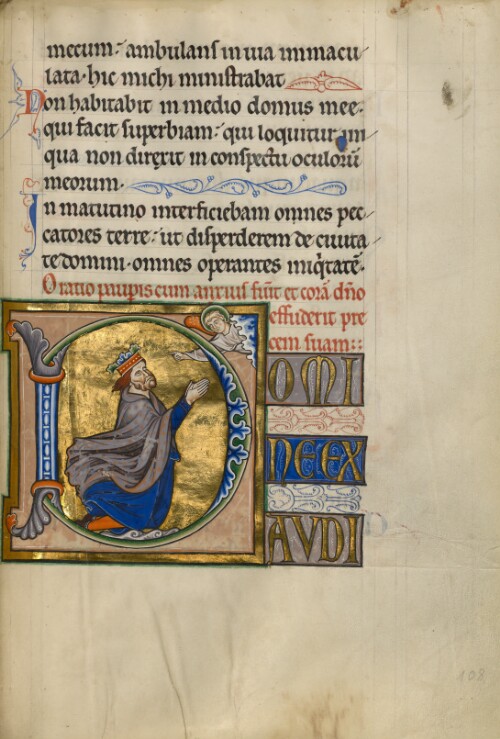 mecum· ambulans in uia immacu
lata· hic michi ministrabat
Non habitabit in medio domus mee·
qui facit superbiam· qui loquitur iniqua
qua non direxit in conspectu oculorū
meorum·
In matutino interficiebam omnes pec
catores terre· ut disperderem de ciuita
te domini· omnes operantes iniq̇tatē·
Oratio paupis cum anxius fuīt et corā dn̄o
effuderit pre
cem suam::
DOMI
NE EX
AVDI
108